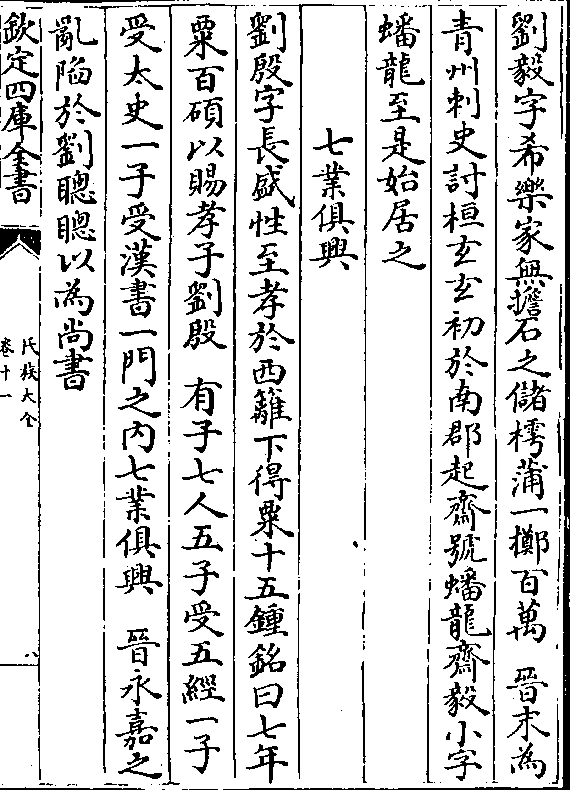 劉毅字希樂家無擔石之儲樗蒲一擲百萬　晉末為
青州刺史討桓玄玄初於南郡起齋號蟠龍齋毅小字
蟠龍至是始居之
七業俱興
劉殷字長盛性至孝於西籬下得粟十五鍾銘曰七年
粟百碩以賜孝子劉殷　有子七人五子受五經一子
受太史一子受漢書一門之內七業俱興　晉永嘉之
亂陷於劉聰聰以為尚書
欽定四庫全書
氏族大全
卷十一
八